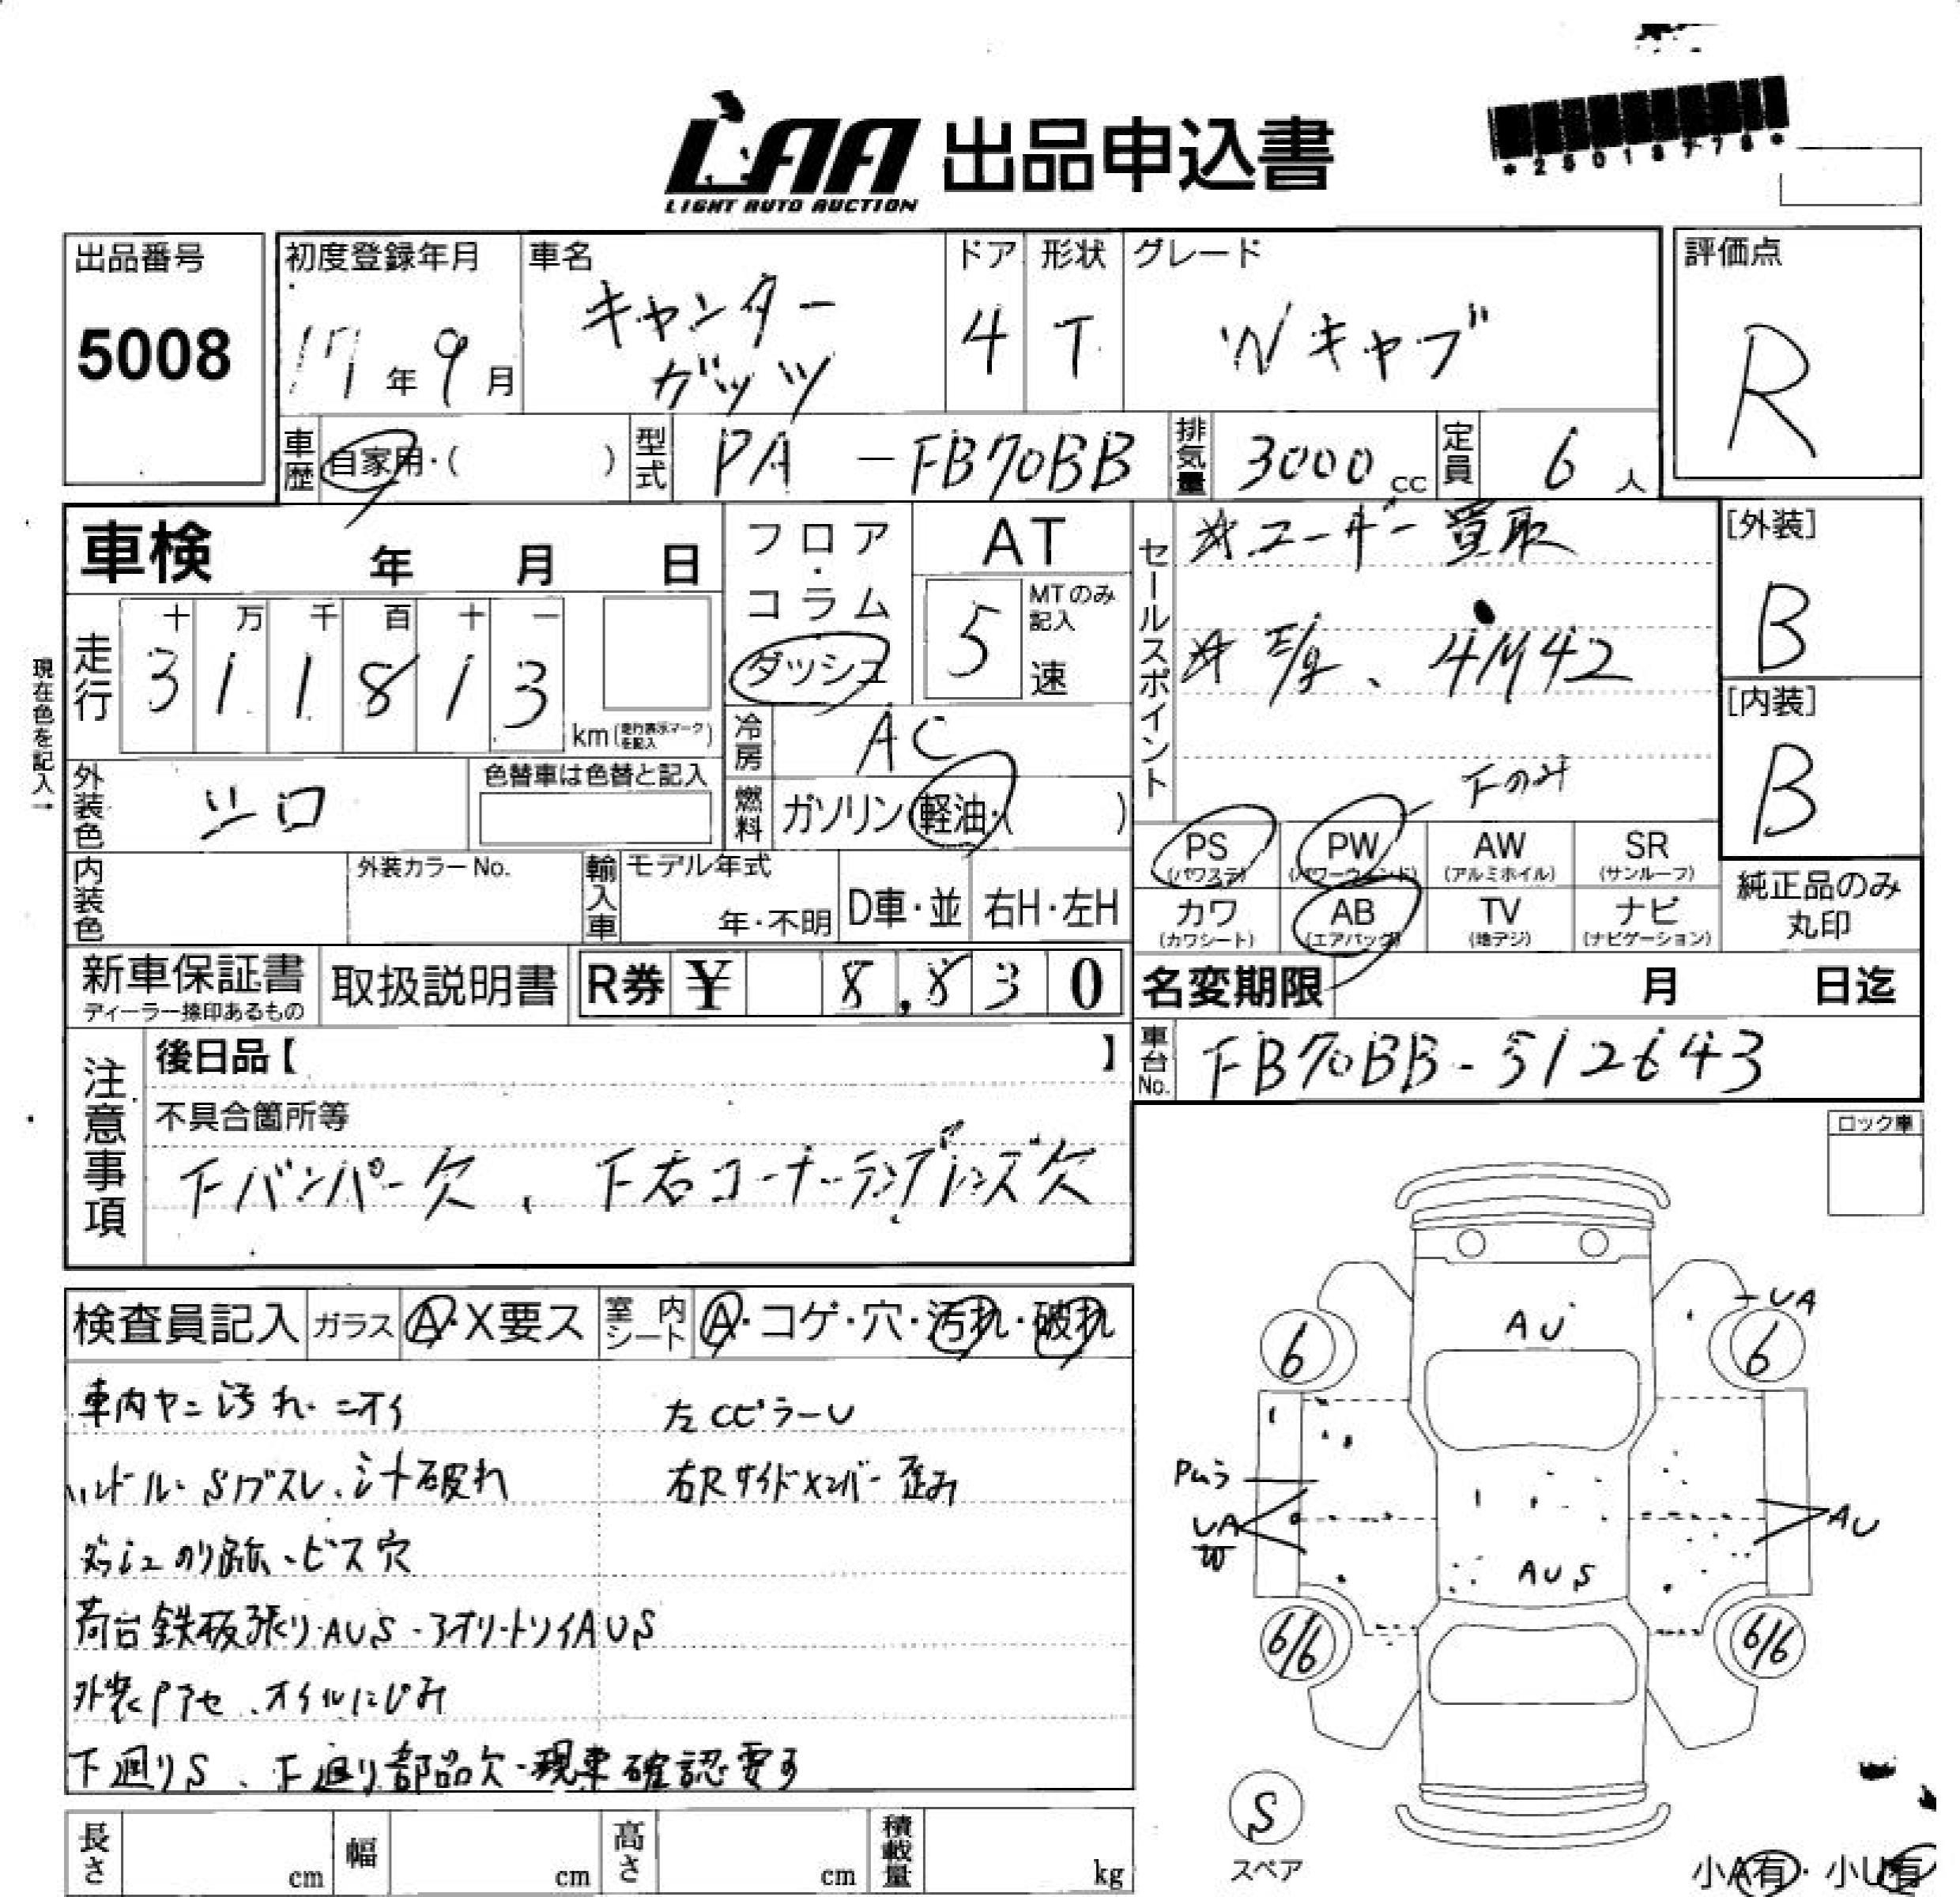 LAA 出品申込書
LIGHT AUTO AUCTION
出品番号
5008
初度登録年月
17年 9月
車名
キャンター
ガッツ
ドア
4
形状
T
グレード
Wキャブ
評価点
R
車歴
自家用・( )
型式
PA -FB70BB
排気量
3000 cc
定員
6 人
車検 年 月 日
フロア・コラム
ダッシュ
AT
5
MTのみ記入
速
セールスポイント
☆ユーザー買取
☆E/g、4M42
Fのみ
[外装]
B
[内装]
B
現在色を記入→
走行
十 万 千 百 十 一
3 1 1 8 1 3
km(走行表示マークを記入)
冷房
AC
外装色
シロ
色替車は色替と記入
燃料
ガソリン・軽油・( )
PS
(パワステ)
PW
(パワーウィンド)
AW
(アルミホイル)
SR
(サンルーフ)
カワ
(カワシート)
AB
(エアバッグ)
TV
(地デジ)
ナビ
(ナビゲーション)
純正品のみ
丸印
内装色
外装カラーNo.
輸入車
モデル年式
年・不明
D車・並
右H・左H
新車保証書
ディーラー捺印あるもの
取扱説明書
R券 ¥ 8,830
名変期限 月 日迄
車台No.
FB70BB-512643
注意事項
後日品【 】
不具合箇所等
Fバンパー欠、F右コーナーランプレンズ欠
ロック車
検査員記入
ガラス
A・X要ス
室内シート
A・コゲ・穴・汚れ・破れ
車内ヤニ汚れ・ニオイ
左CピラーU
ハンドル・Sノブスレ、シート破れ
右Rサイドメンバー歪み
ダッシュのり跡・ビス穴
荷台鉄板張りAUS・アオリ・トリイAUS
外装色アセ、オイルにじみ
下廻りS、下廻り部品欠・現車確認要す
AU
UA
6
6
AU
UA
W
AUS
6/6
6/6
S
スペア
長さ cm
幅 cm
高さ cm
積載量 kg
小A有・小U有